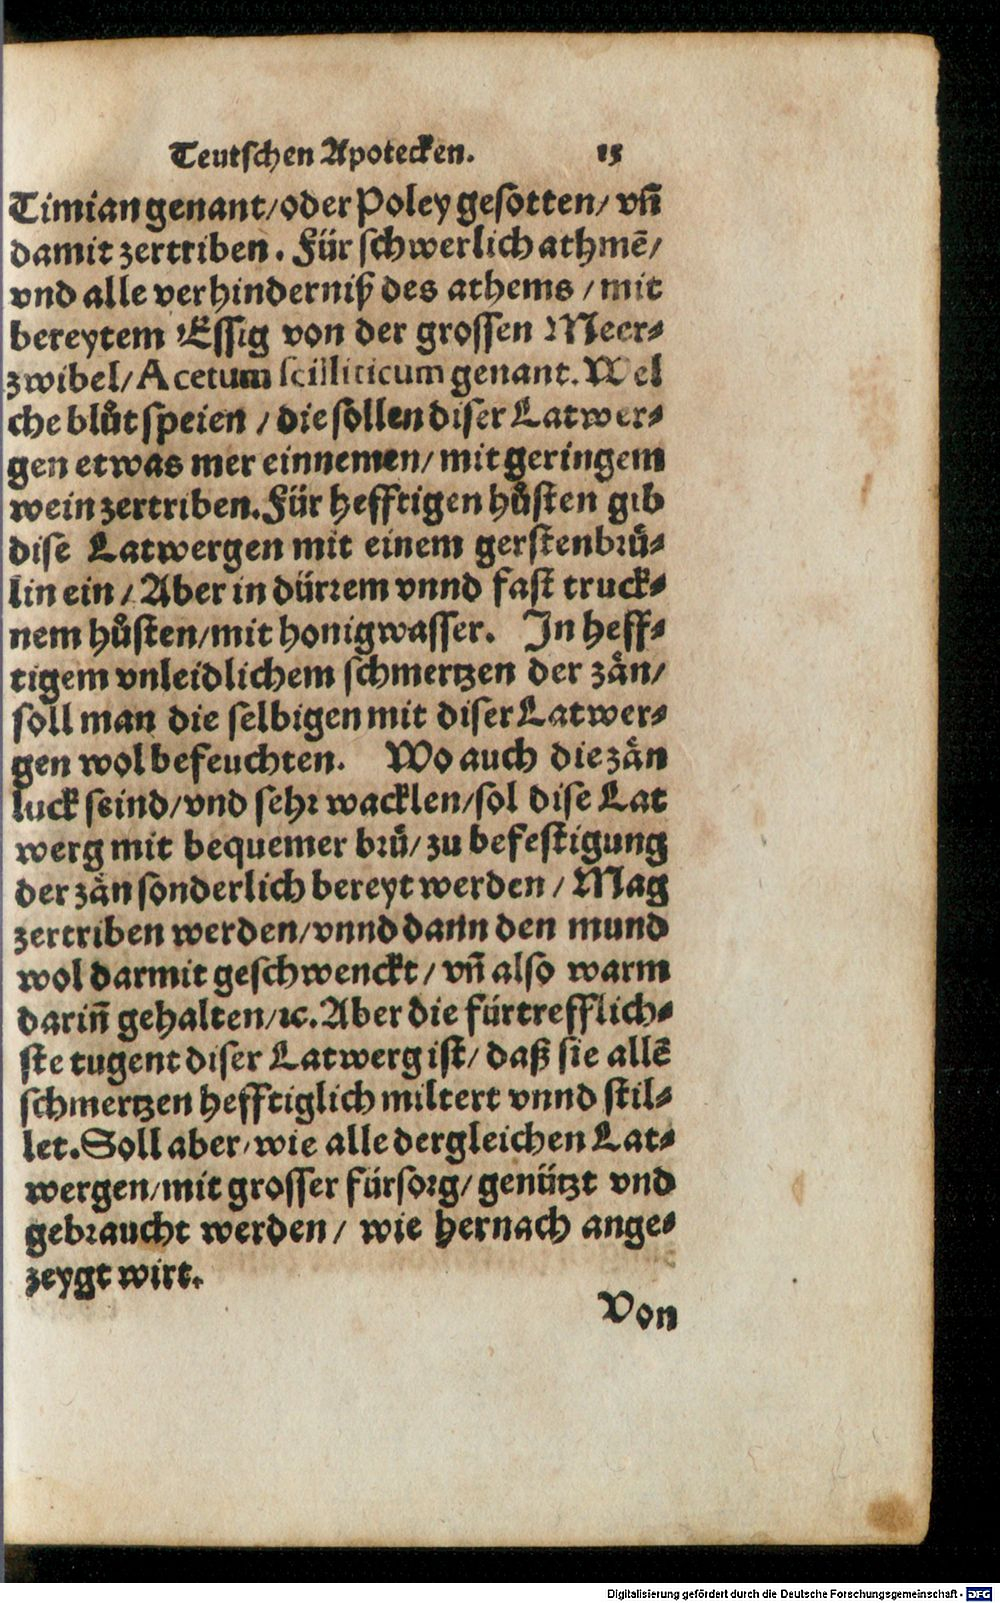 Teutschen Apotecken. 15
Timian genant/ oder Poley gesotten/ vñ
damit zertriben. Für schwerlich athmẽ/
vnd alle verhinderniß des athems / mit
bereytem Essig von der grossen Meer-
zwibel/ Acetum scilliticum genant. Wel
che blůt speien / die sollen diser Latwer-
gen etwas mer einnemen/ mit geringem
wein zertriben. Für hefftigen hůsten gib
dise Latwergen mit einem gerstenbrů-
lin ein / Aber in dürrem vnnd fast truck-
nem hůsten/ mit honigwasser. In heff-
tigem vnleidlichem schmertzen der zän/
soll man die selbigen mit diser Latwer-
gen wol befeuchten. Wo auch die zän
luck seind/ vnd sehr wacklen/ sol dise Lat
werg mit bequemer brů/ zu befestigung
der zän sonderlich bereyt werden / Mag
zertriben werden/ vnnd dann den mund
wol darmit geschwenckt / vñ also warm
darin̄ gehalten/ ꝛc. Aber die fürtrefflich-
ste tugent diser Latwerg ist/ daß sie allẽ
schmertzen hefftiglich miltert vnnd stil-
let. Soll aber/ wie alle dergleichen Lat-
wergen/ mit grosser fürsorg/ genützt vnd
gebraucht werden/ wie hernach ange-
zeygt wirt.
Von
Digitalisierung gefördert durch die Deutsche Forschungsgemeinschaft - DFG